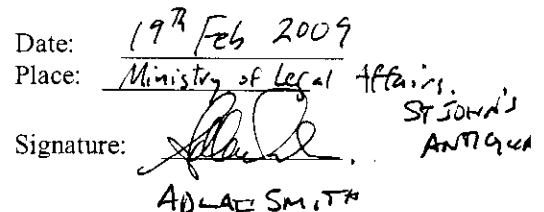 Date: 19th Feb 2009
Place: Ministry of Legal Affairs.
ST JOHN'S
Signature:
ANTIGUA
SMITH